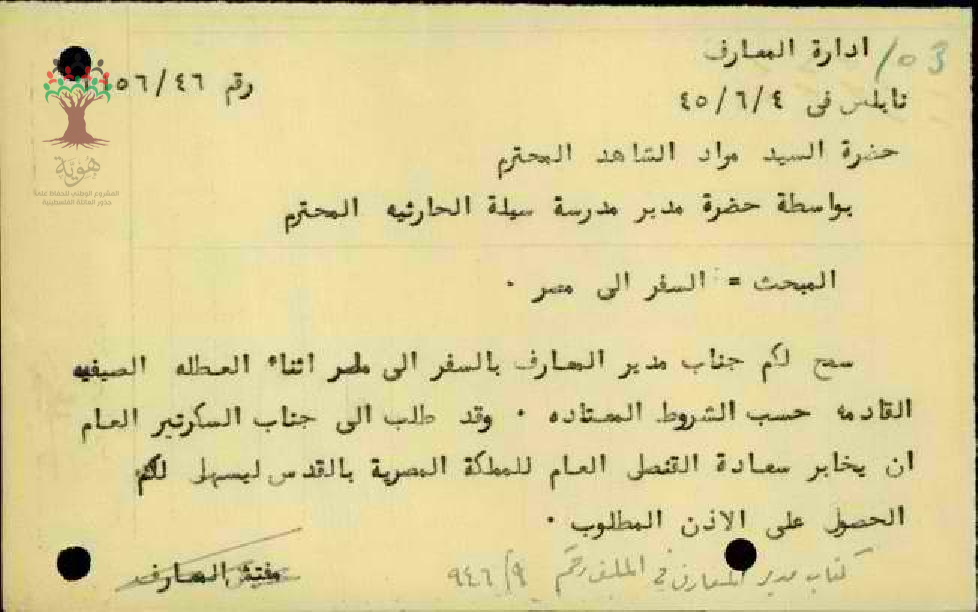 ادارة المعارف
١٥٣/
رقم ٤٦/ ١٥٦
نابلس في ٤/ ٦/ ٤٥
حضرة السيد مراد الشاهد المحترم
بواسطة حضرة مدير مدرسة سيلة الحارثيه المحترم
المبحث = السفر الى مصر .
سمح لكم جناب مدير المعارف بالسفر الى مصر اثناء العطله الصيفيه
القادمه حسب الشروط المعتاده . وقد طلب الى جناب السكرتير العام
ان يخابر سعادة القنصل العام للمملكة المصرية بالقدس ليسهل لكم
الحصول على الاذن المطلوب .
مفتش المعارف
كتاب مدير المعارف في الملف رقم ٩٤٦/٩
هوية
المشروع الوطني للحفاظ على
جذور العائلة الفلسطينية